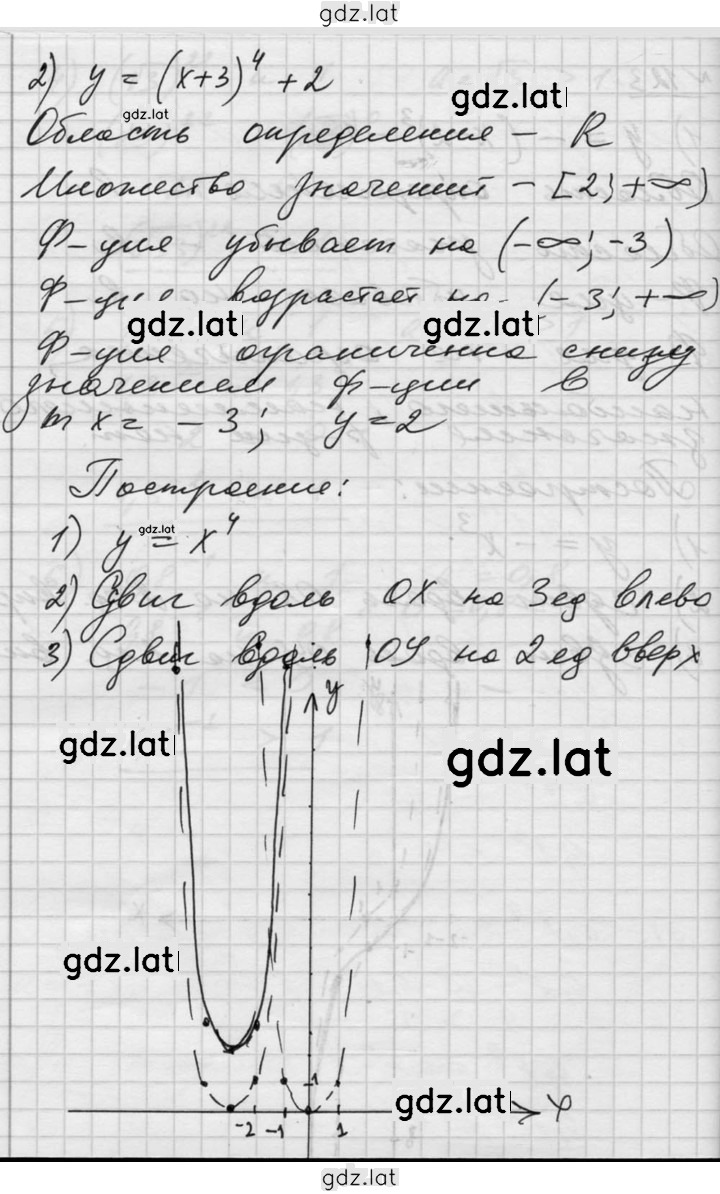 gdz.lat
2) y = (x+3)⁴ + 2
gdz.lat
gdz.lat
Область определения – R
Множество значений – [2; +∞)
Ф-ция убывает на (-∞; -3)
Ф-ция возрастает на (-3; +∞)
gdz.lat gdz.lat
Ф-ция ограниченна снизу
значением ф-ции в
т x = -3; y = 2
Построение:
1) y = x⁴
gdz.lat
2) Сдвиг вдоль OX на 3ед влево
3) Сдвиг вдоль OY на 2 ед вверх
y
gdz.lat gdz.lat
gdz.lat
1
gdz.lat
-2 -1 1
gdz.lat